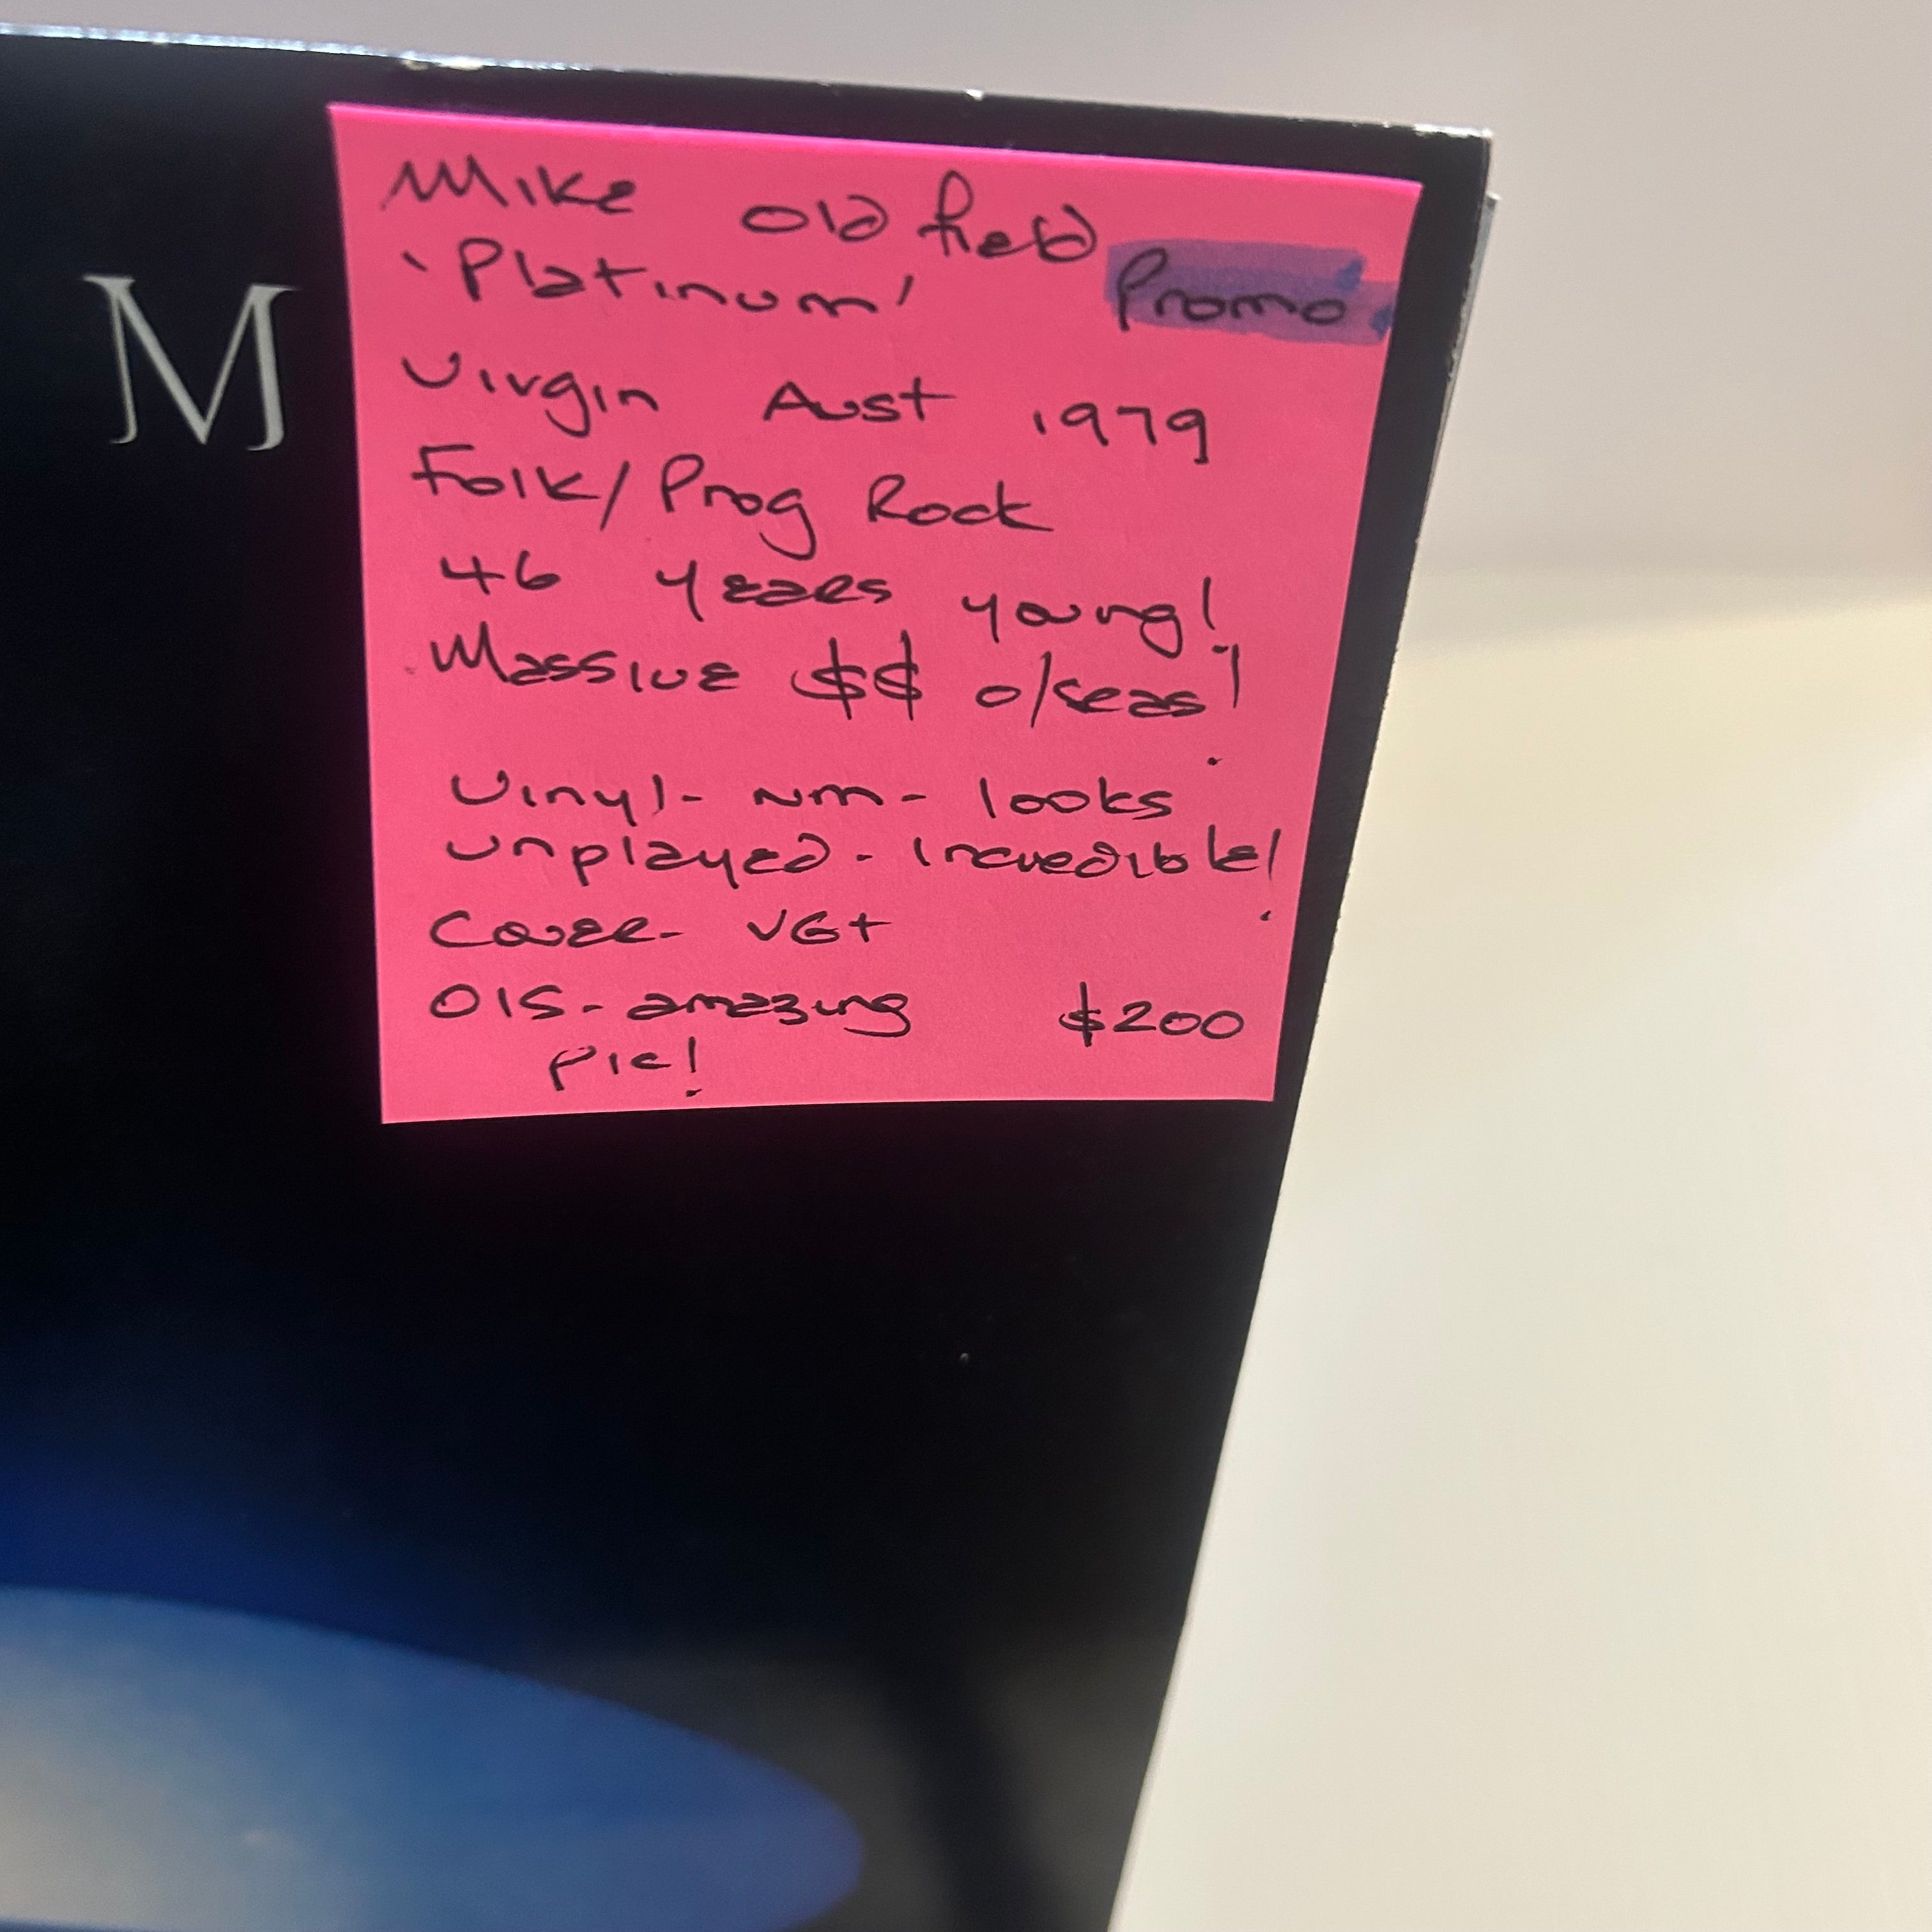 M
Mike Oldfield
'Platinum' Promo
Virgin Aust 1979
Folk/Prog Rock
46 years young!
Massive $$ o/seas!
Vinyl- NM- looks
unplayed- incredible!
Cover- VG+
OIS- amazing $200
pic!